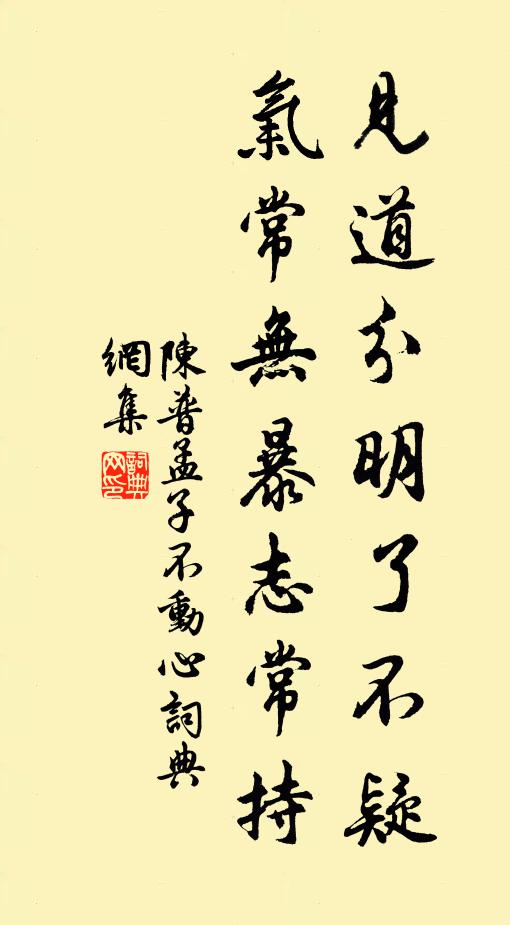 見道分明了不疑
氣常無暴志常持
陳普孟子不動心詞典
網集
詞典
网印